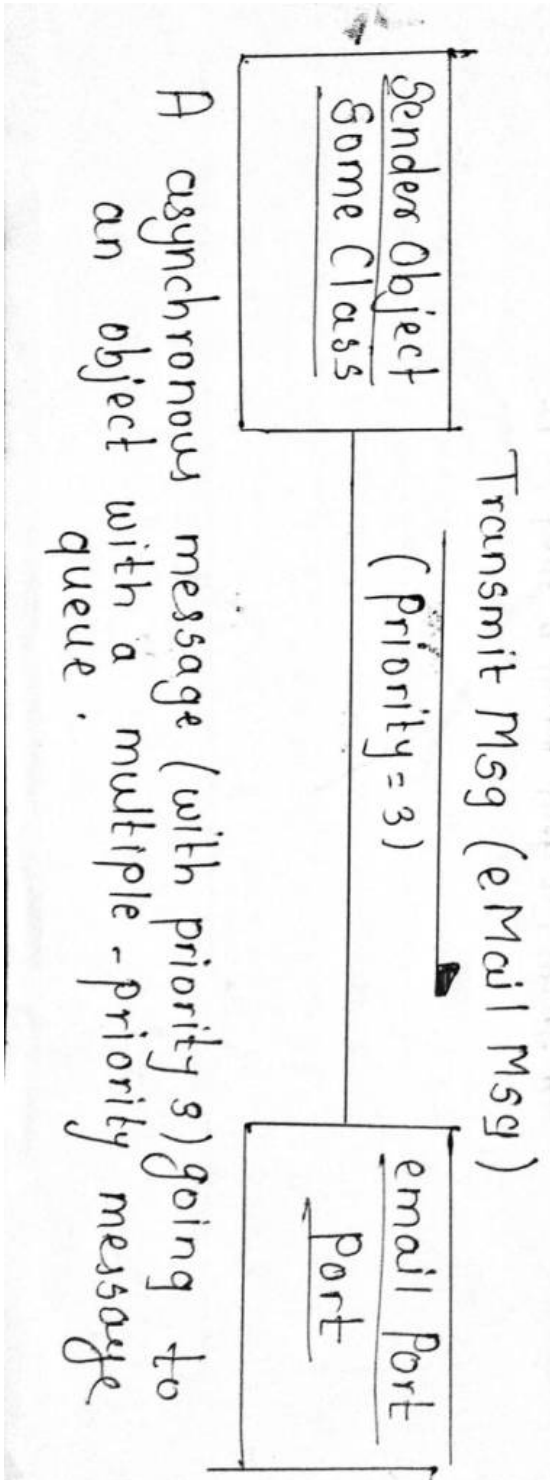 Transmit Msg (eMail Msg)
(Priority = 3)
Sender Object
Some Class
email Port
Port
A asynchronous message (with priority 3) going to
an object with a multiple - priority message
queue.